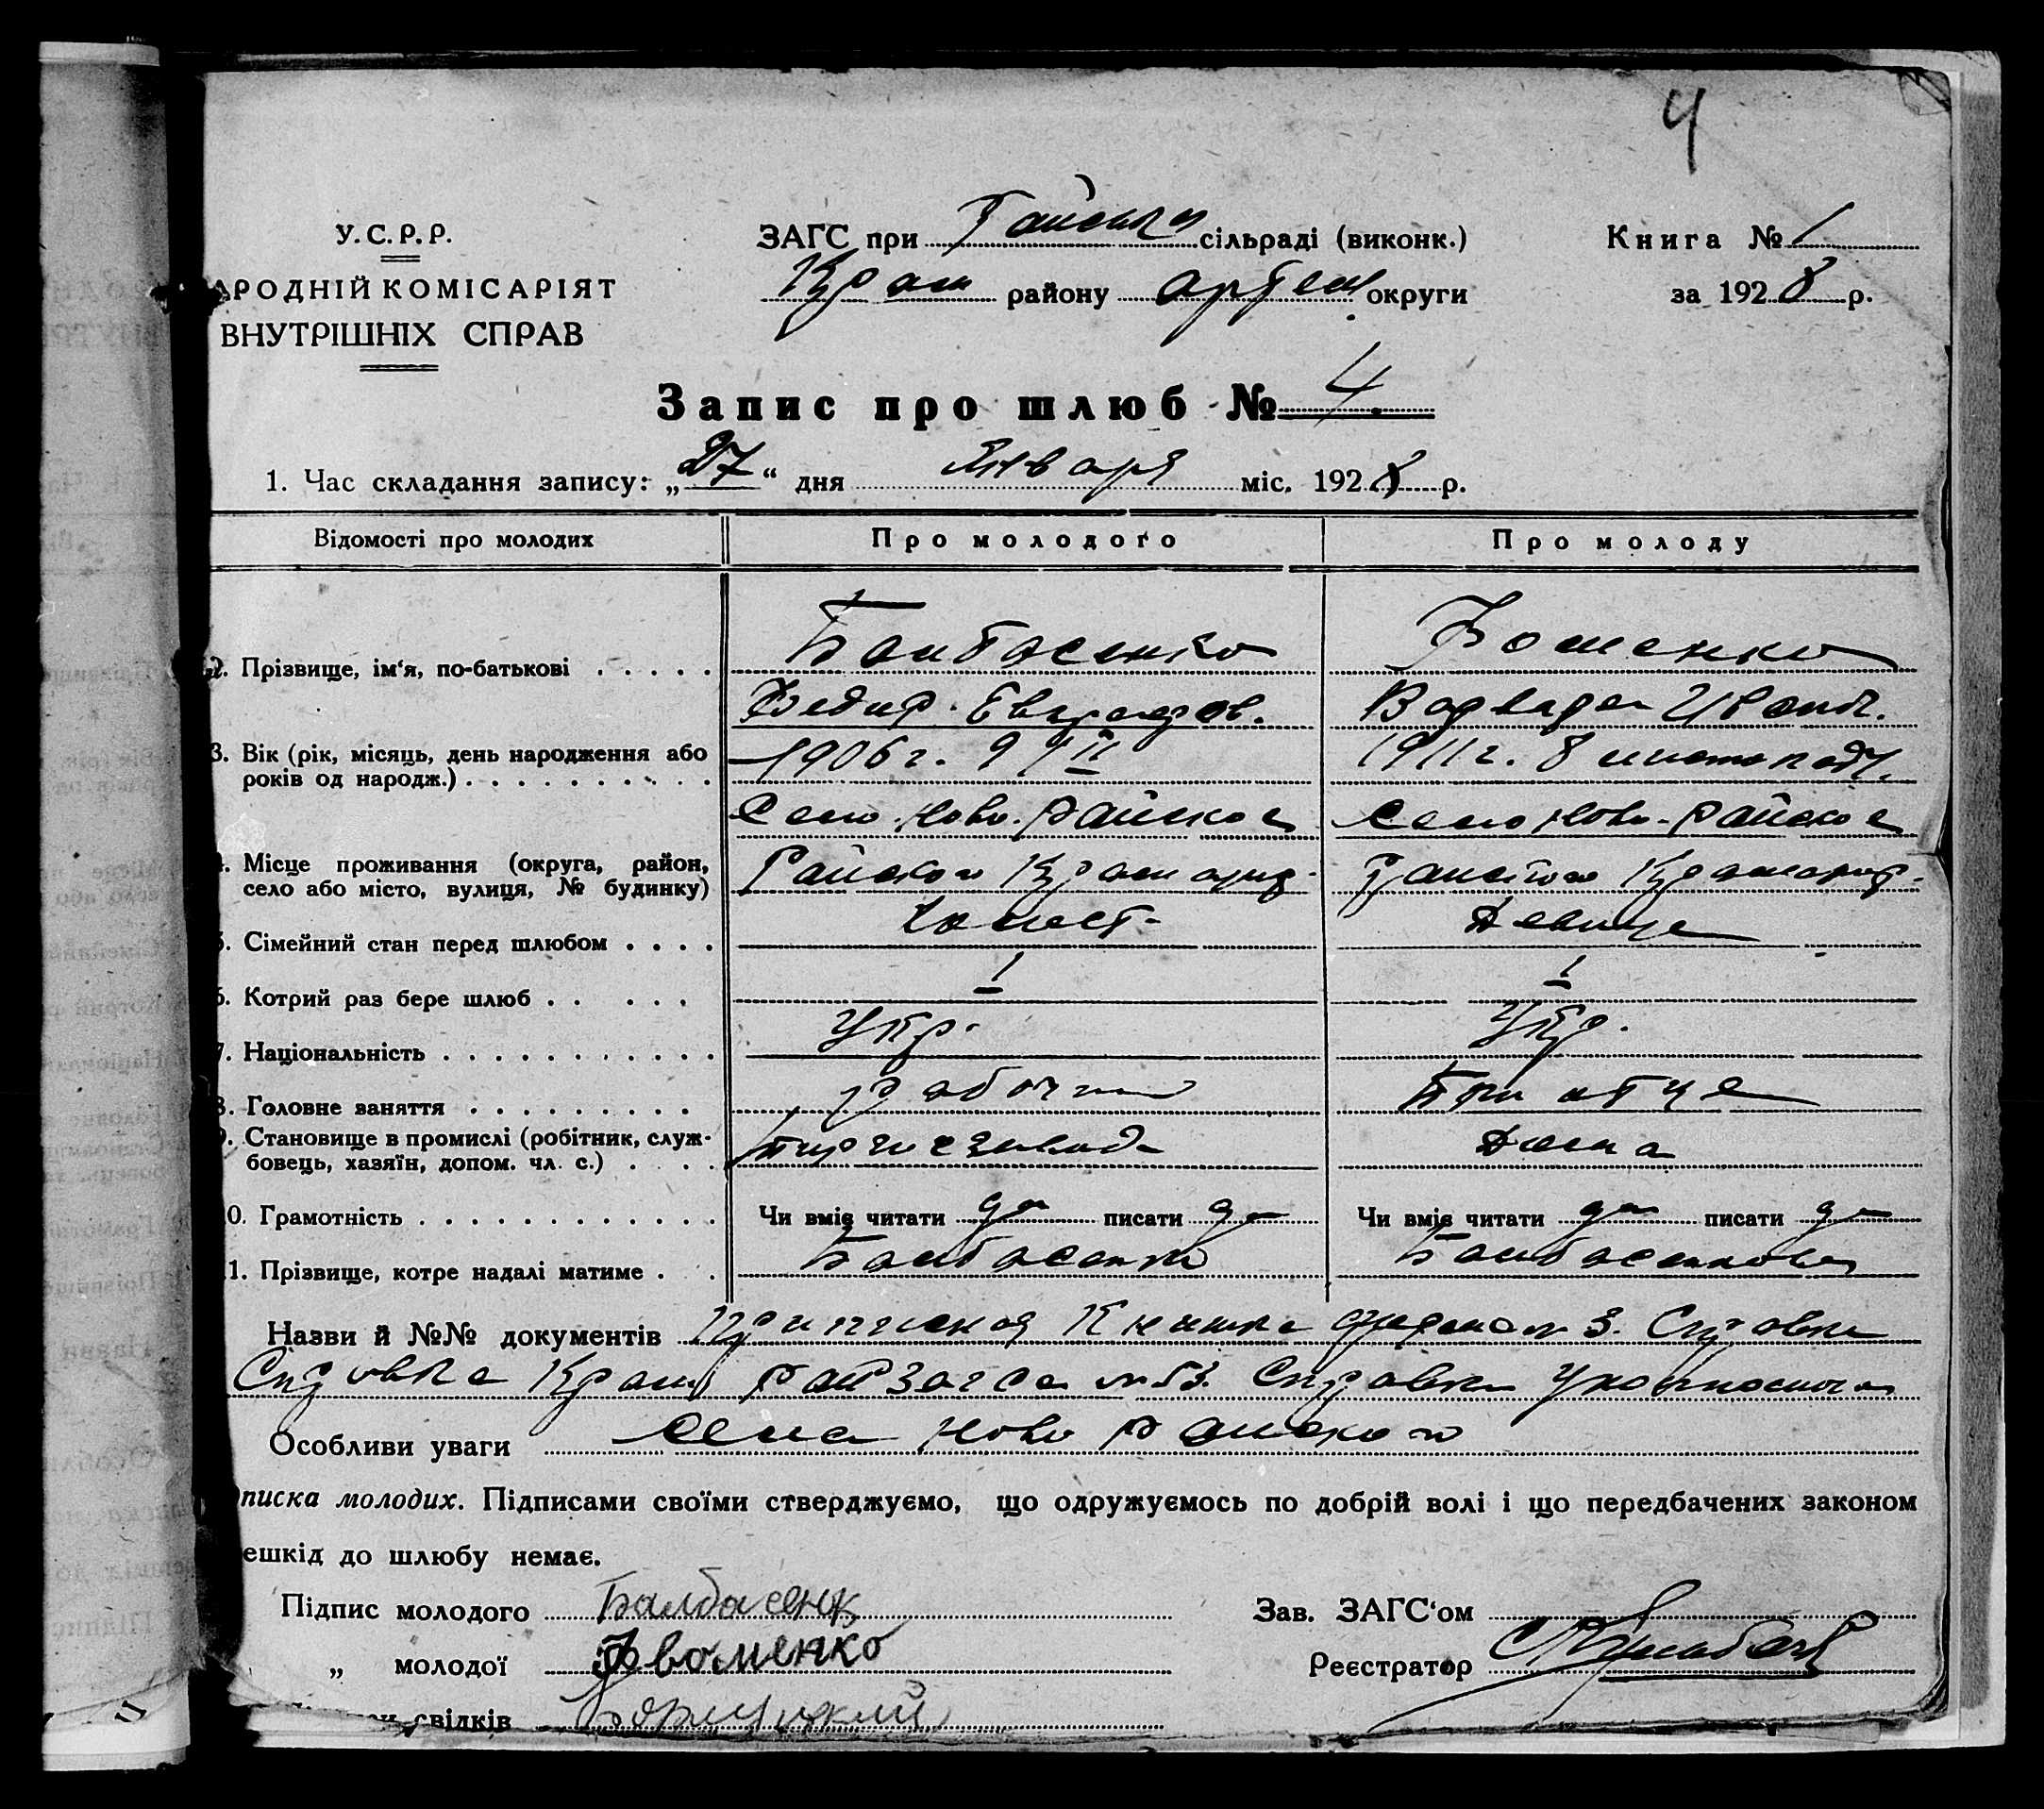 4
У.С.Р.Р.
АРОДНІЙ КОМІСАРІЯТ
ВНУТРІШНІХ СПРАВ
ЗАГС при Райськ сільраді (виконк.)
Крам району Артем округи
Книга № 1
за 1928 р.
Запис про шлюб № 4.
1. Час складання запису: „27“ дня Января міс. 1928 р.
Відомості про молодих
Про молодого
Про молоду
2. Прізвище, ім‘я, по-батькові
Балбасенко
Фоменко
Федир
Иванов.
3. Вік (рік, місяць, день народження або
років од народж.)
1906 г. 9/II
1911 г. 8 листопад.
Село Ново-Райское
Село Ново-Райское
4. Місце проживання (округа, район,
село або місто, вулиця, № будинку)
Райского Крам
Райского Крам
5. Сімейний стан перед шлюбом
Холост.
Девица
6. Котрий раз бере шлюб
1
1
7. Національність
Укр.
Укр.
8. Головне заняття
рабочий
При отце
9. Становище в промислі (робітник, служ-
бовець, хазяїн, допом. чл. с.)
завода
Дома
10. Грамотність
Чи вміє читати да писати да
Чи вміє читати да писати да
11. Прізвище, котре надалі матиме
Балбасенко
Балбасенкова
Назви й №№ документів книжка № 3. Справка
Справка Крам райзагса № 53. Справка
Особливи уваги села Ново Райского
писка молодих. Підписами своїми стверджуємо, що одружуємось по добрій волі і що передбачених законом
ешкід до шлюбу немає.
Підпис молодого Балбасенк
„ молодої Фвоменко
свідків
Зав. ЗАГС‘ом
Реєстратор